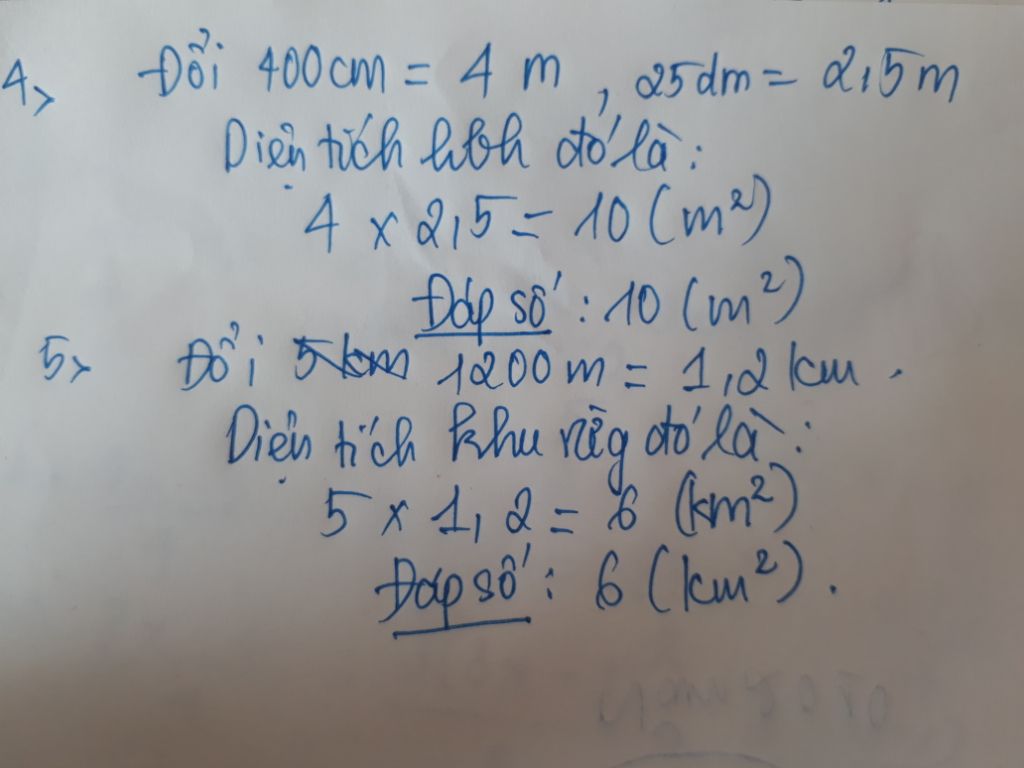 4, Đổi 400cm = 4 m, 25dm = 2,5m
Diện tích hbh đó là:
4 x 2,5 = 10 (m²)
Đáp số: 10 (m²)
5, Đổi 5km 1200m = 1,2km.
Diện tích khu rừg đó là:
5 x 1,2 = 6 (km²)
Đáp số: 6 (km²).